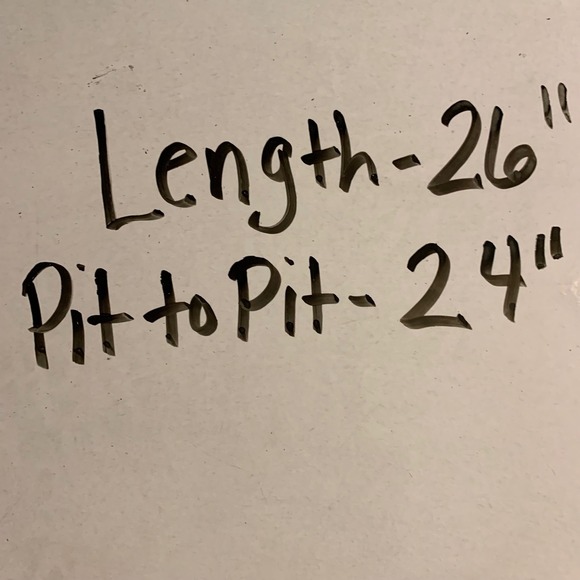 Length-26"
Pit to Pit-24"